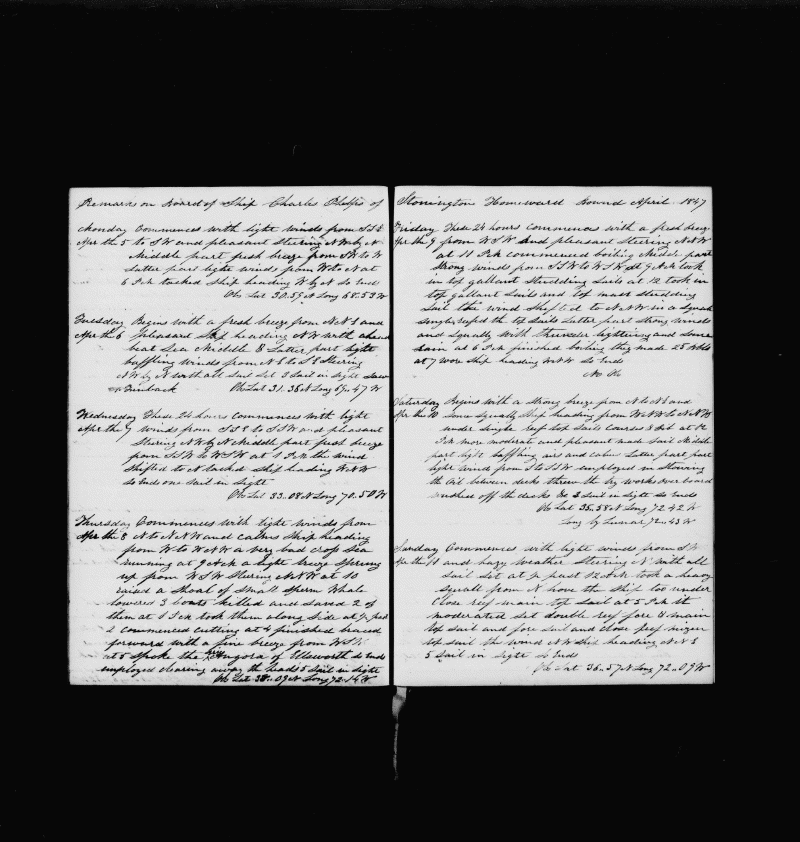 Remarks on Board of Ship Charles Phelps of
Monday Commences with light winds from SSE
Apr the 5 to SW and pleasant Steering NW by N
Middle part fresh breze from SW to W
Latter part light winds from W to N at
6 P.M tacked Ship heading W by N So Ends
Ob Lat 30.59 N Long 68.53 W
Tuesday Begins with a fresh breeze from NNE and
Apr the 6 pleasant Ship heading NW with a head
beat Sea Middle & Latter part light
baffling winds from NE to SE Steering
NW by N with all Sail Set 3 Sail in Sight Saw
a Finback Ob Lat 31.36 N Long 69.47 W
Wednesday These 24 hours Commences with light
Apr the 7 winds from SSE to SSW and pleasant
Steering NW by N Middle part fresh breeze
from SSW to WSW at 1 P.M the wind
Shifted to N tacked Ship heading WNW
So Ends one Sail in Sight
Ob Lat 33.08 N Long 70.50 W
Thursday Commences with light winds from
Apr the 8 N to NNW and calms Ship heading
from W to WNW a very bad cross Sea
running at 9 A.M a light breeze Sprung
up from WSW Steering NNW at 10
raised a Shoal of Small Sperm Whale
lowered 3 boats killed and Saved 2 of
them at 1 P.M took them along Side at ½ past
2 commenced cutting at 4 finished braced
forward with a fine breeze from WSW
at 5 Spoke the Angora of Ellsworth So Ends
employed clearing away the heads 5 Sail in Sight
Ob Lat 35.09 N Long 72.14 W
Stonington Homeward Bound April 1847
Friday These 24 hours commences with a fresh breeze
Apr the 9 from WSW and pleasant Steering NNW
at 11 P.M commenced boiling Middle part
Strong winds from SSW to WSW at 9 A.M took
in top gallant Studding Sails at 12 took in
top gallant Sails and top mast Studding
Sail the wind Shifted to NNW in a Squall
Single reefed the top Sails Latter part Strong winds
and Squally with thunder lightning and Some
rain at 6 P.M finished boiling they made 25 bbls
at 7 wore Ship heading WNW So Ends
No Ob
Saturday Begins with a Strong breeze from N to NE and
Apr the 10 Some Squally Ship heading from WNW to NNW
under Single reef top Sails Courses & Jib at 12
P.M more moderate and pleasant made Sail Middle
part light baffling airs and calms Latter part
light winds from S to SW employed in Stowing
the Oil between decks threw the try works over board
washed off the decks &c 3 Sail in Sight So Ends
Ob Lat 35.58 N Long 72.42 W
Long by Lunar 72.43 W
Sunday Commences with light winds from SW
Apr the 11 and hazy weather Steering N with all
Sail Set at ½ past 12 A.M took a heavy
Squall from N hove the Ship too under
Close reef main top Sail at 5 P.M it
moderated Set double reef fore & main
top Sail and fore Sail and Close reef mizen
top Sail the wind NW Ship heading NNE
5 Sail in Sight So Ends
Ob Lat 36.57 N Long 72.09 W